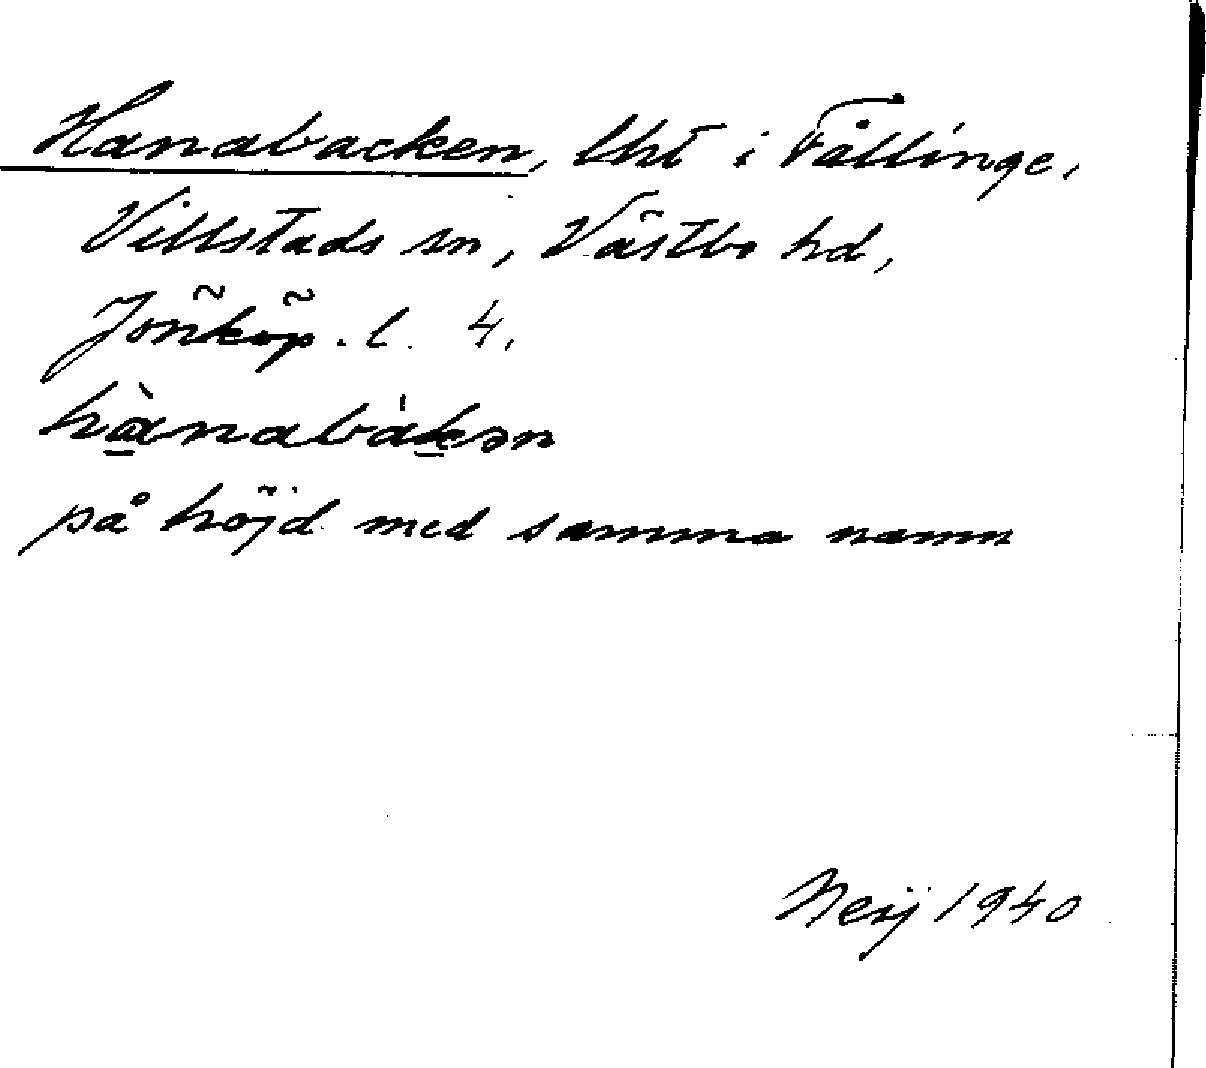 Hanabacken, lht i Fållinge,
Villstads sn, Västbo hd,
Jönköp. l. 4.
hànabákən
på höjd med samma namn
Neij 1940